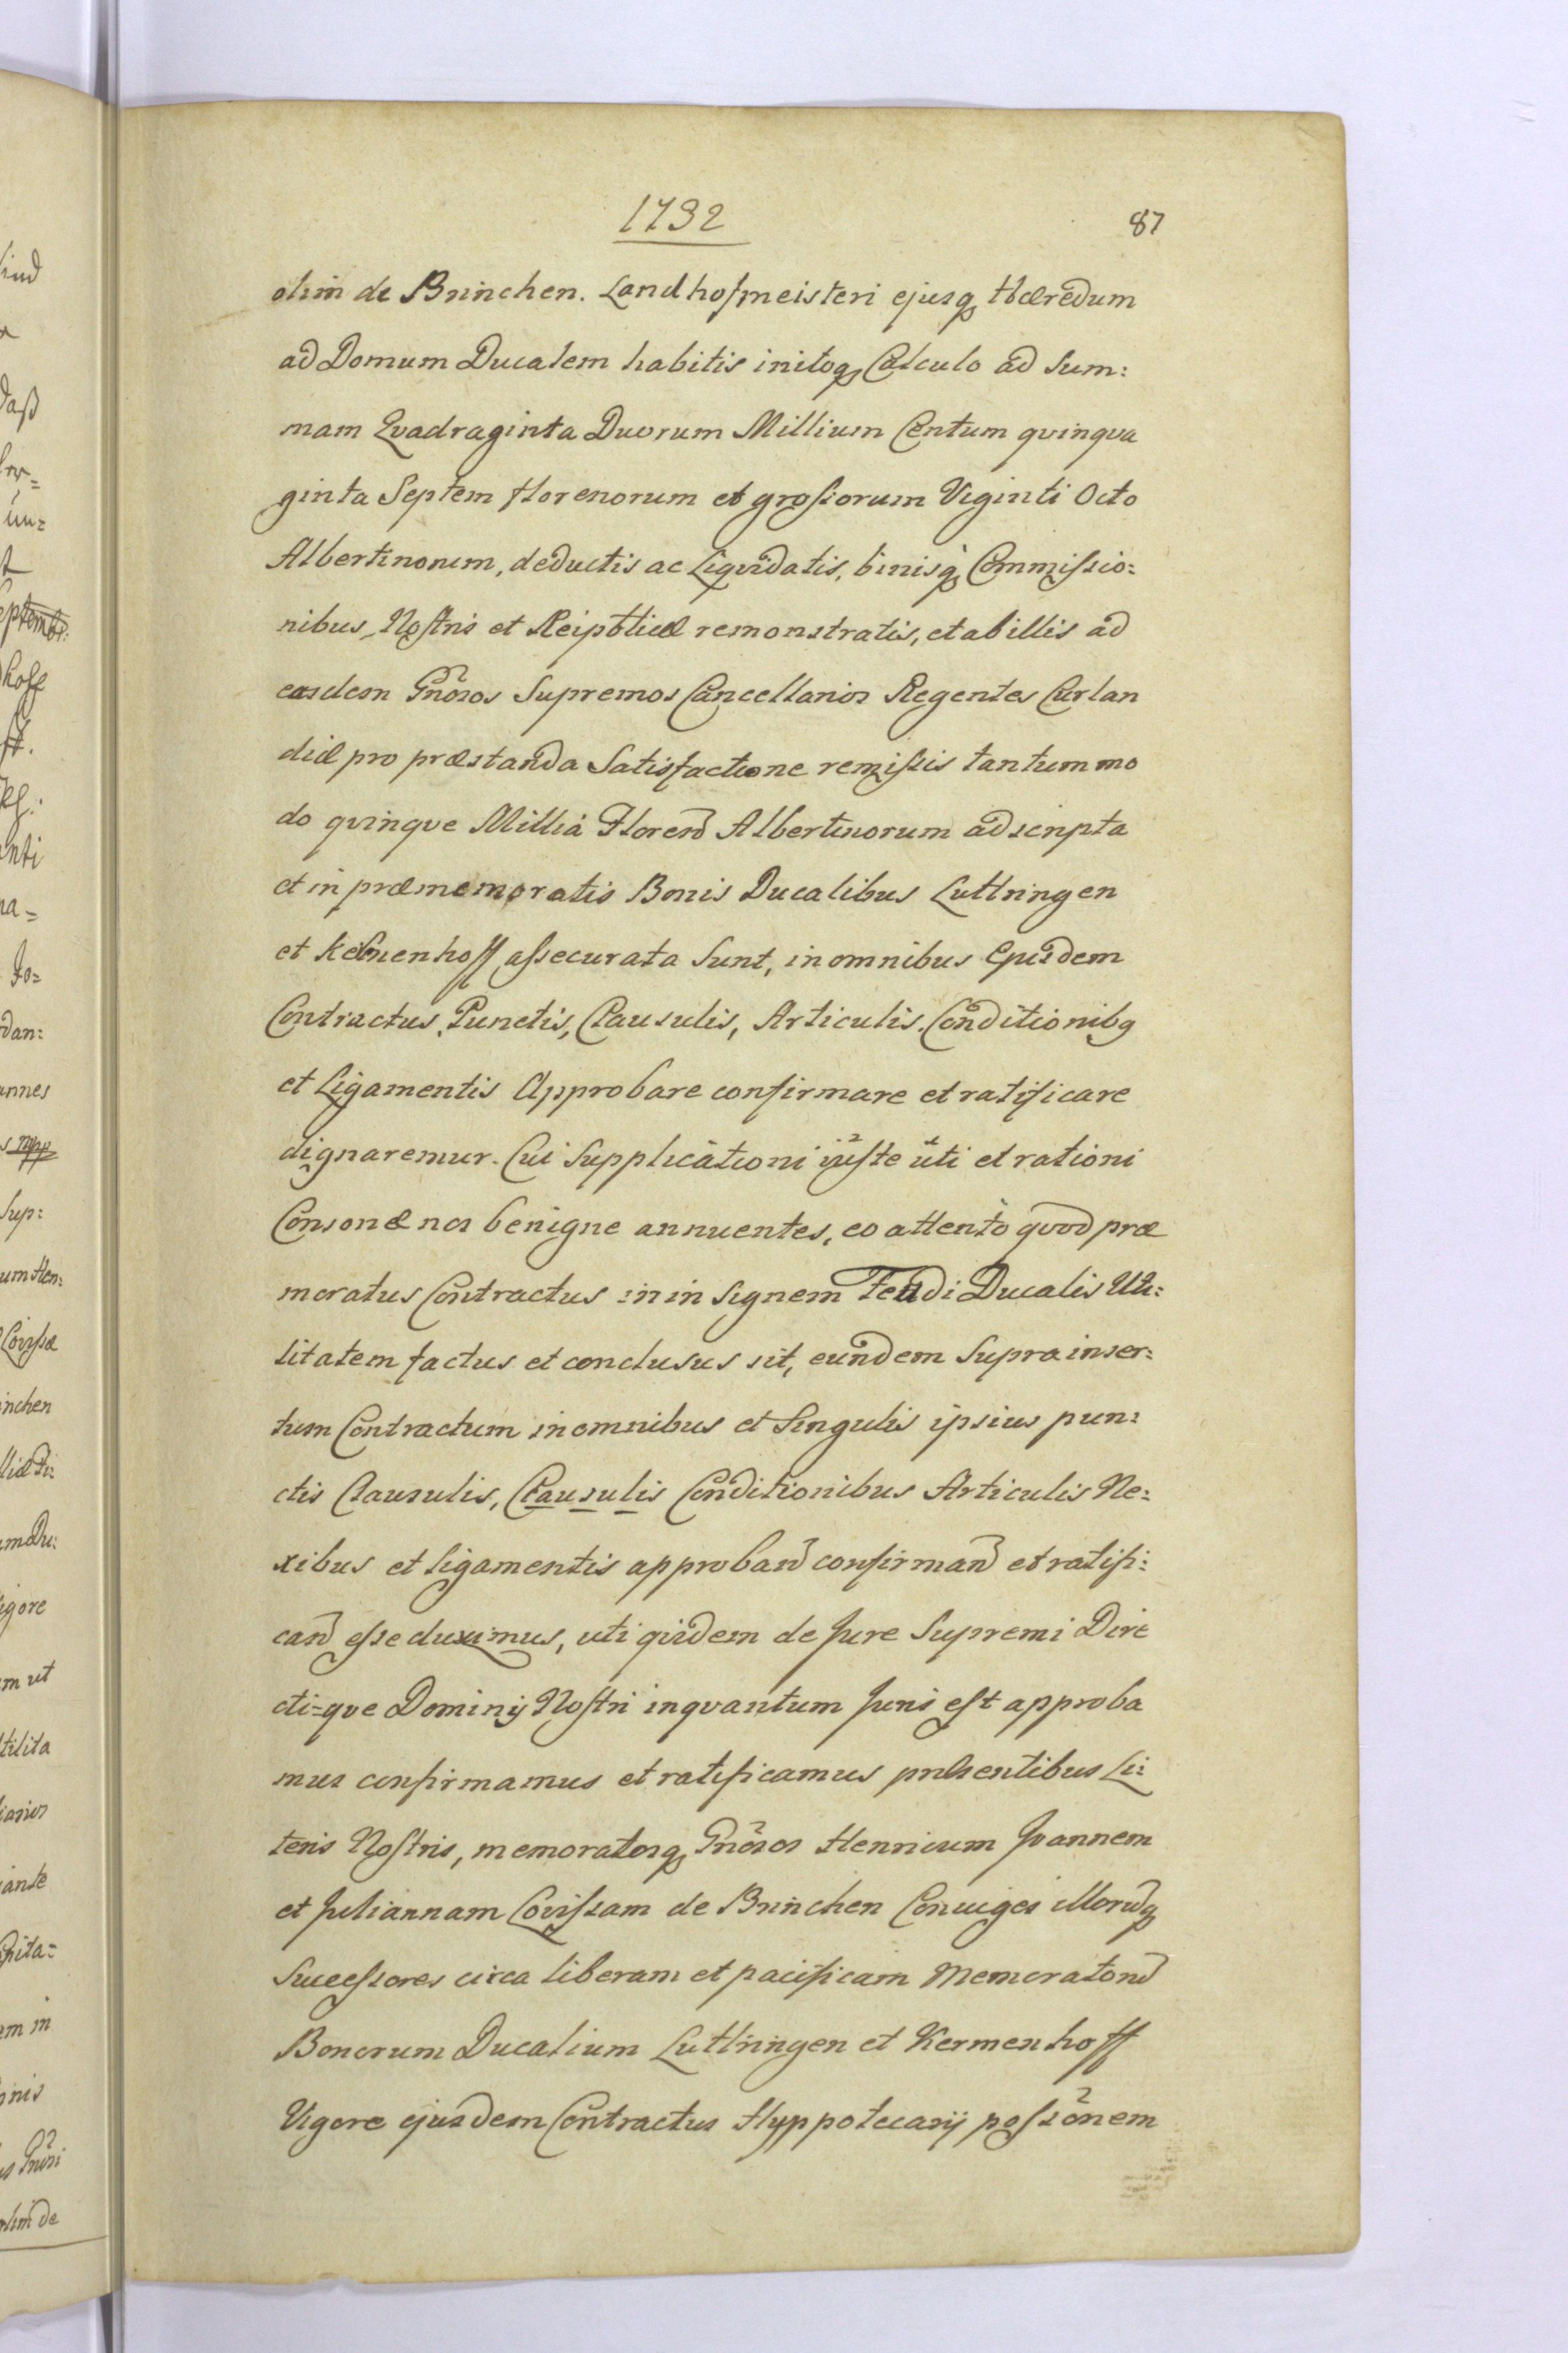 1732
87
olim de Brinchen. Landhofmeisteri ejusq Hæredum
ad Domum Ducalem habitis initoq Calculo ad Sum:
mam Qvadraginta Duorum Millium Centum qvinqva
ginta Septem florenorum et grossorum Viginti Octo
Albertinorum, deductis ac Liqvidatis, binisq Commissio:
nibus, Nostris et Reipblicæ remonstratis, et ab illis ad
eosdem Gnosos Supremos Cancellarios Regentes Curlan
diæ pro præstanda Satisfactione remissis tantummo
do qvinqve Millia Floren Albertinorum adscripta
et in præmemoratis Bonis Ducalibus Luttringen
et Kermenhoff assecurata Sunt, in omnibus Ejusdem
Contractus, Punctis, Clausulis, Articulis. Conditionibq
et Ligamentis Approbare confirmare et ratificare
dignaremur. Cui Supplicationi juste uti et rationi
Consonæ nos benigne annuentes, eo attento qvod præ
moratus Contractus in insignem Feudi Ducalis Uti:
litatem factus et conclusus sit, eundem Supra inser:
tum Contractum in omnibus et Singulis ipsius pun:
ctis Clausulis, Clausulis Conditionibus Articulis Ne:
xibus et ligamentis approband confirmand et ratifi:
cand esse duximus, uti qvidem de Jure Supremi Dire
cti=qve Dominij Nostri inqvantum Juris est approba
mus confirmamus et ratificamus præsentibus Li:
teris Nostris, memoratosq Gnosos Henricum Joannem
et Juliannam Lovissam de Brinchen Conjuges illorumq
Successores circa liberam et pacificam Memoratorum
Bonorum Ducalium Luttringen et Kermenhoff
Vigore ejusdem Contractus Hyppotecarij possionem